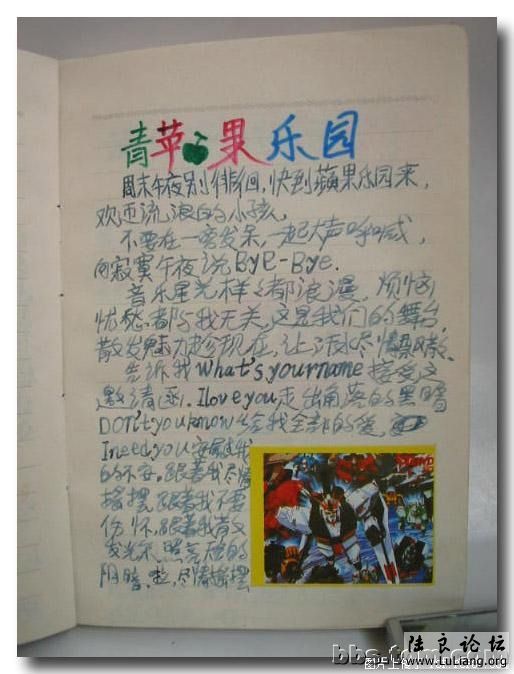 青苹果乐园
周末午夜别徘徊,快到蘋果乐园来,
欢迎流浪的小孩,
不要在一旁发呆,一起大声呼喊,
向寂寞午夜说BYE-Bye.
音乐星光样样都浪漫,烦恼
忧愁都与我无关,这是我们的舞台,
散发魅力趁现在,让汗水尽情飘散.
告诉我what's your name接受这
邀请函.I love you走出角落的黑暗
DON't you know给我全部的爱,
I need you安慰我
的不安.跟着我尽情
摇摆,跟着我不要
伤怀,跟着我散
发光 照亮 的
阴暗.啦,尽情摇摆
陆良论坛
www.luliang.org